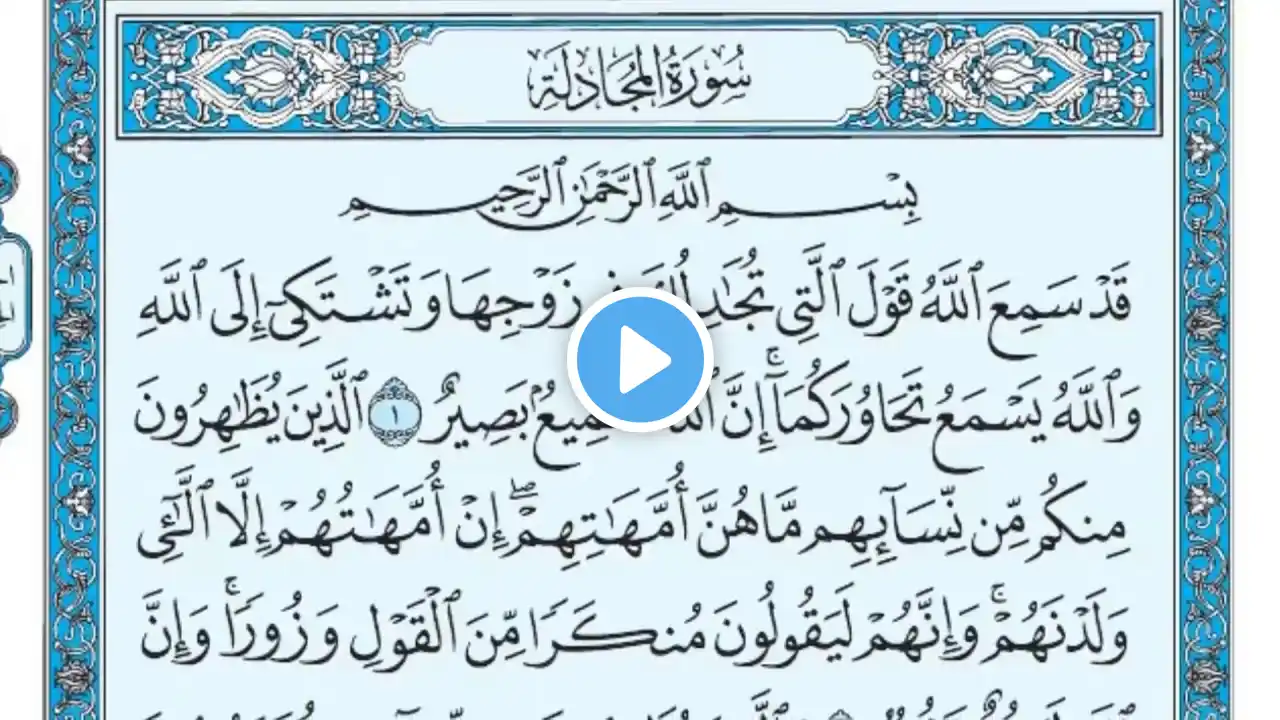 سُورَةُ المُجَادلَةِ
بِسْمِ ٱللَّهِ ٱلرَّحْمَٰنِ ٱلرَّحِيمِ
قَدْ سَمِعَ ٱللَّهُ قَوْلَ ٱلَّتِي تُجَٰدِلُكَ زَوْجِهَا وَتَشْتَكِىٓ إِلَى ٱللَّهِ
وَٱللَّهُ يَسْمَعُ تَحَاوُرَكُمَآ ۚ إِنَّ بَصِيرٌ ١ ٱلَّذِينَ يُظَٰهِرُونَ
مِنكُم مِّن نِّسَآئِهِم مَّا هُنَّ أُمَّهَٰتِهِمْ ۖ إِنْ أُمَّهَٰتُهُمْ إِلَّا ٱلَّٰٓـِٔي
وَلَدْنَهُمْ ۚ وَإِنَّهُمْ لَيَقُولُونَ مُنكَرًا مِّنَ ٱلْقَوْلِ وَزُورًا ۚ وَإِنَّ